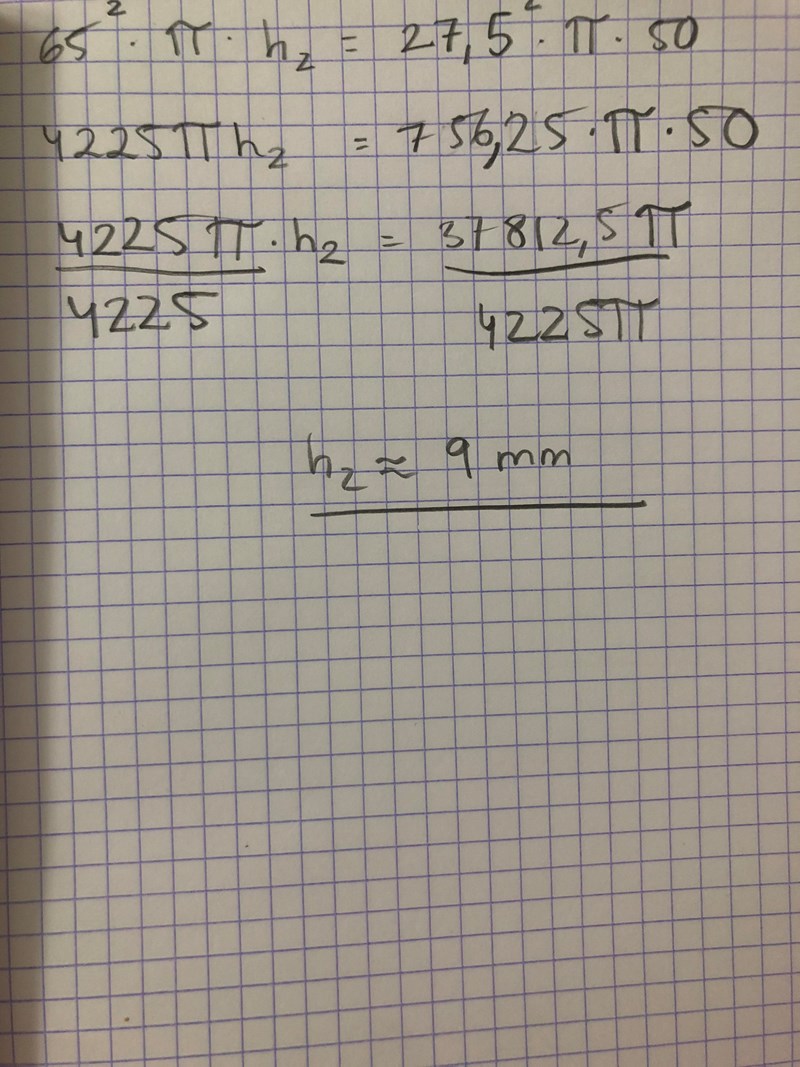 65² · π · h₂ = 27,5² · π · 50
4225πh₂ = 756,25 · π · 50
4225π · h₂ = 37812,5π
4225 4225π
h₂ ≈ 9 mm